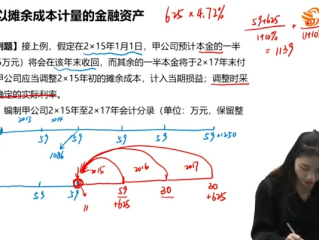 以摊余成本计量的金融资产
625×4.72%
59+625
1+10%
30
=1139
例题】接上例，假定在2×15年1月1日，甲公司预计本金的一半
5万元）将会在该年末收回，而其余的一半本金将于2×17年末付
甲公司应当调整2×15年初的摊余成本，计入当期损益；调整时采
确定的实际利率。
编制甲公司2×15年至2×17年会计分录（单位：万元，保留整
2013 2014
59 59 59 59+1250
1086
2015 2016 2017
59 59 59 30 30
+625 +625
11